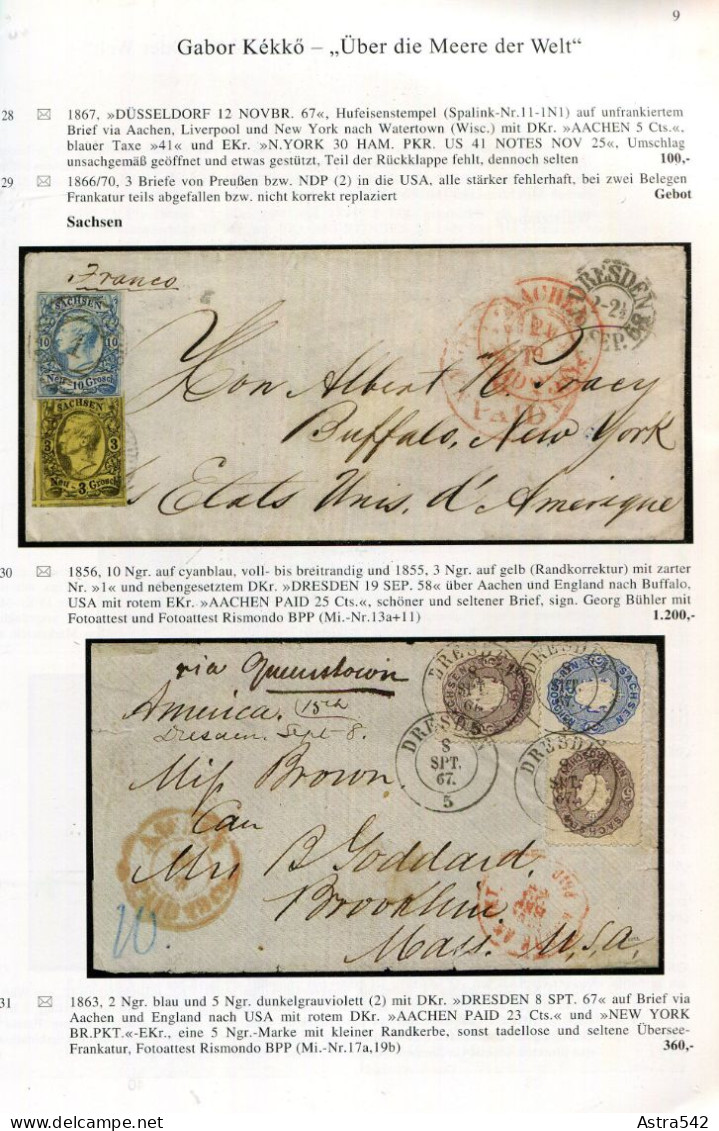 9
Gabor Kékkő – „Über die Meere der Welt“
28 1867, »DÜSSELDORF 12 NOVBR. 67«, Hufeisenstempel (Spalink-Nr.11-1N1) auf unfrankiertem
Brief via Aachen, Liverpool und New York nach Watertown (Wisc.) mit DKr. »AACHEN 5 Cts.«,
blauer Taxe »41« und EKr. »N.YORK 30 HAM. PKR. US 41 NOTES NOV 25«, Umschlag
unsachgemäß geöffnet und etwas gestützt, Teil der Rückklappe fehlt, dennoch selten 100,-
29 1866/70, 3 Briefe von Preußen bzw. NDP (2) in die USA, alle stärker fehlerhaft, bei zwei Belegen
Frankatur teils abgefallen bzw. nicht korrekt replaziert Gebot
Sachsen
Franco
SACHSEN
10 10
Neu-10 Grosch
SACHSEN
3 3
Neu-3 Grosch
AACHEN
PAID
DRESDEN
SEP. 58
Hon Albert H. Tracy
Buffalo, New York
Etats Unis. d'Amerique
30 1856, 10 Ngr. auf cyanblau, voll- bis breitrandig und 1855, 3 Ngr. auf gelb (Randkorrektur) mit zarter
Nr. »1« und nebengesetztem DKr. »DRESDEN 19 SEP. 58« über Aachen und England nach Buffalo,
USA mit rotem EKr. »AACHEN PAID 25 Cts.«, schöner und seltener Brief, sign. Georg Bühler mit
Fotoattest und Fotoattest Rismondo BPP (Mi.-Nr.13a+11) 1.200,-
via Queenstown
America.
Dresden. Sept 8.
DRESDEN
8
SPT.
67.
5
DRESDEN
SACHSEN
DRESDEN
SACHSEN
Miss Brown
Care
Mrs B Goddard.
Brookline.
Mass. U.S.A.
31 1863, 2 Ngr. blau und 5 Ngr. dunkelgrauviolett (2) mit DKr. »DRESDEN 8 SPT. 67« auf Brief via
Aachen und England nach USA mit rotem DKr. »AACHEN PAID 23 Cts.« und »NEW YORK
BR.PKT.«-EKr., eine 5 Ngr.-Marke mit kleiner Randkerbe, sonst tadellose und seltene Übersee-
Frankatur, Fotoattest Rismondo BPP (Mi.-Nr.17a,19b) 360,-
Astra542